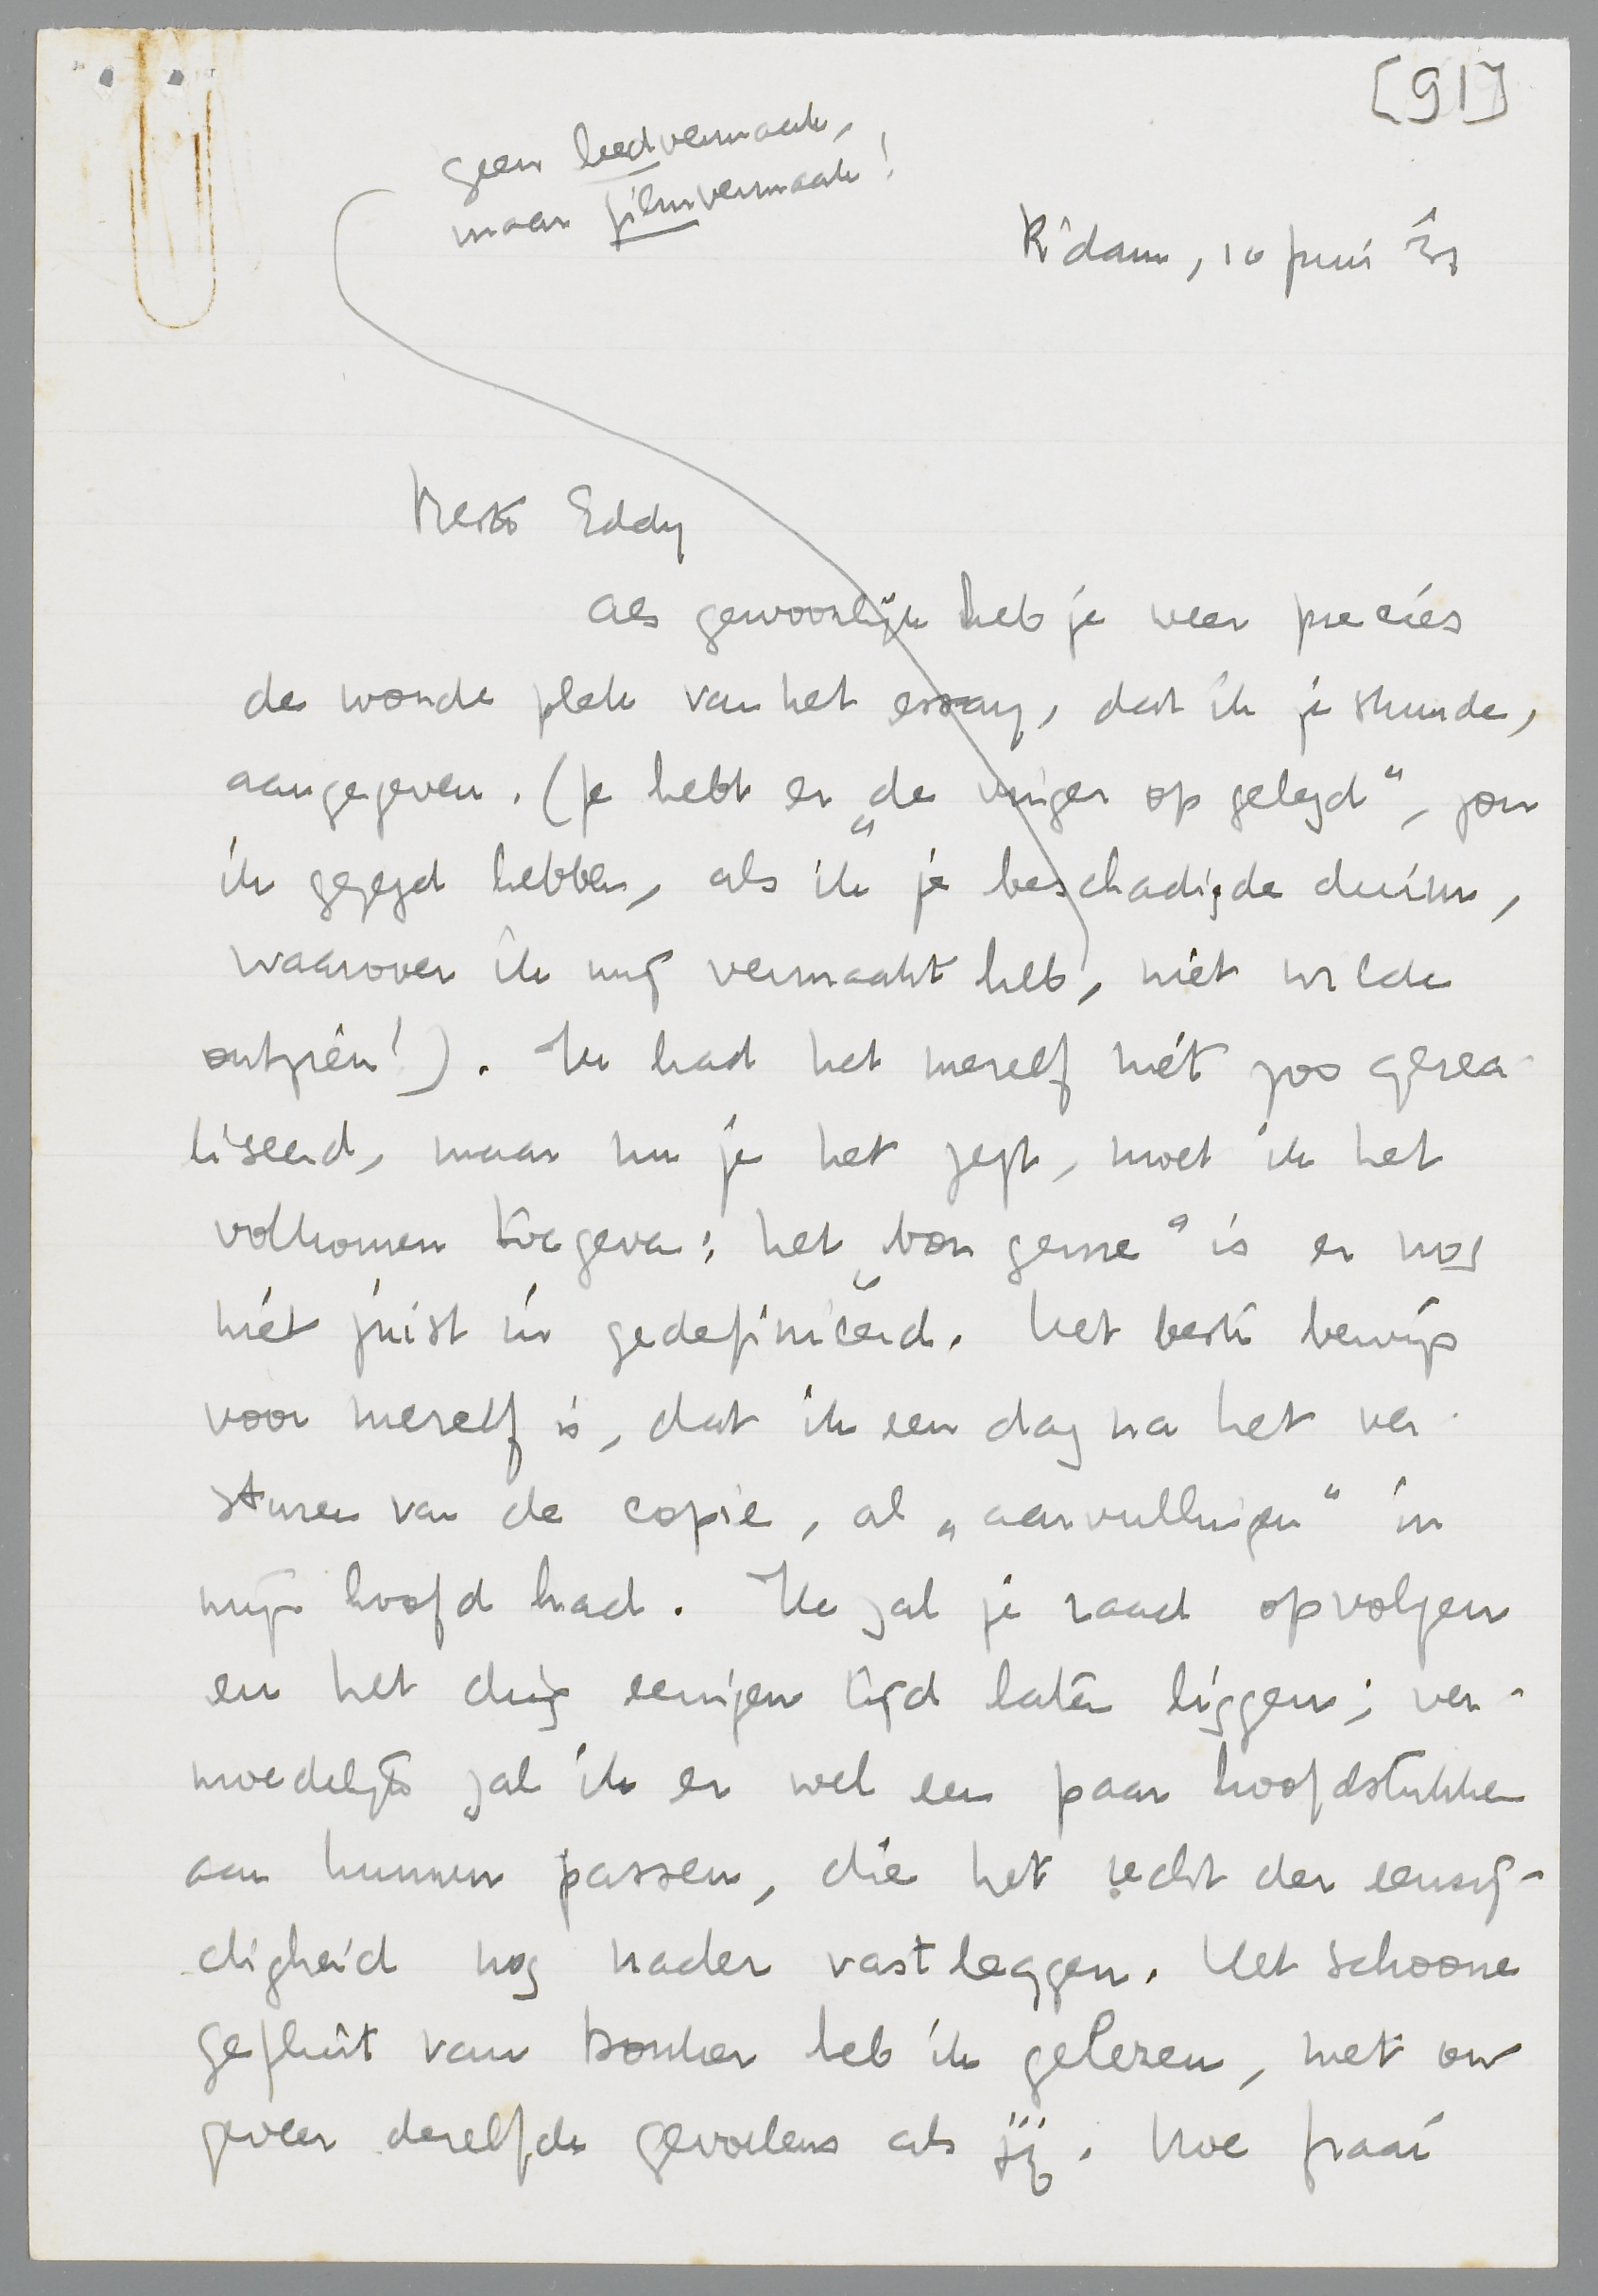 [91]
geen leedvermaak,
maar filmvermaak!
R'dam, 10 Juni '31
Beste Eddy
Als gewoonlijk heb je weer precies
de wonde plek van het essay, dat ik je stuurde,
aangegeven. (Je hebt er „de vinger op gelegd”, zou
ik gezegd hebben, als ik je beschadigde duim,
waarover ik mij vermaakt heb, niet wilde
ontzien!). Ik had het mezelf niet zoo gerea-
liseerd, maar nu je het zegt, moet ik het
volkomen toegeven: het „bon genre” is er nog
niet juist in gedefinieerd. Het beste bewijs
voor mezelf is, dat ik een dag na het ver-
sturen van de copie, al „aanvullingen” in
mijn hoofd had. Ik zal je raad opvolgen
en het ding eenigen tijd laten liggen; ver-
moedelijk zal ik er wel een paar hoofdstukken
aan kunnen passen, die het recht der eenzij-
digheid nog nader vastleggen. Het schoone
gefluit van Donker heb ik gelezen, met on-
geveer dezelfde gevoelens als jij. Hoe fraai